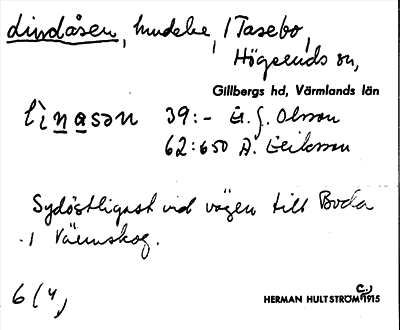 Lindåsen, hudelse, i Tasebo,
Högsends sn,
Gillbergs hd, Värmlands län
lìnasən 39:- G. J. Olsson
62:650 D. Eriksson
Sydöstligast vid vägen till Boda
i Värmskog.
6 (4)
HERMAN HULTSTRÖM C. 1915